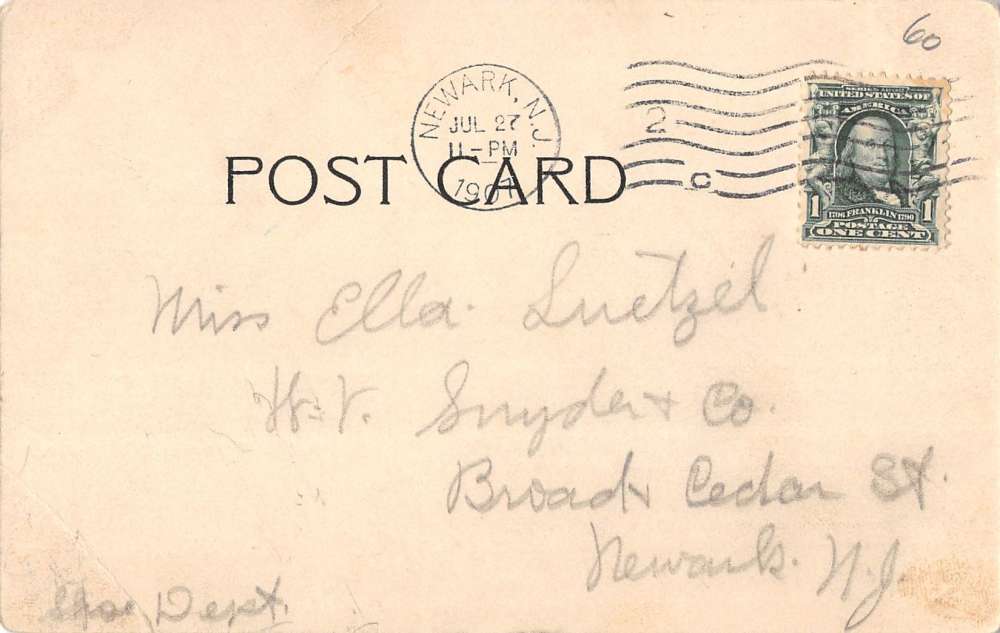 60
NEWARK, N.J.
JUL 27
11-PM
1907
2
C
SERIES 1902
UNITED STATES OF
AMERICA
1706 FRANKLIN 1790
1 POSTAGE 1
ONE CENT
POST CARD
Miss Ella Luetzel
W. V. Snyder & Co.
Broad & Cedar St.
Newark. N.J.
Shoe Dept.